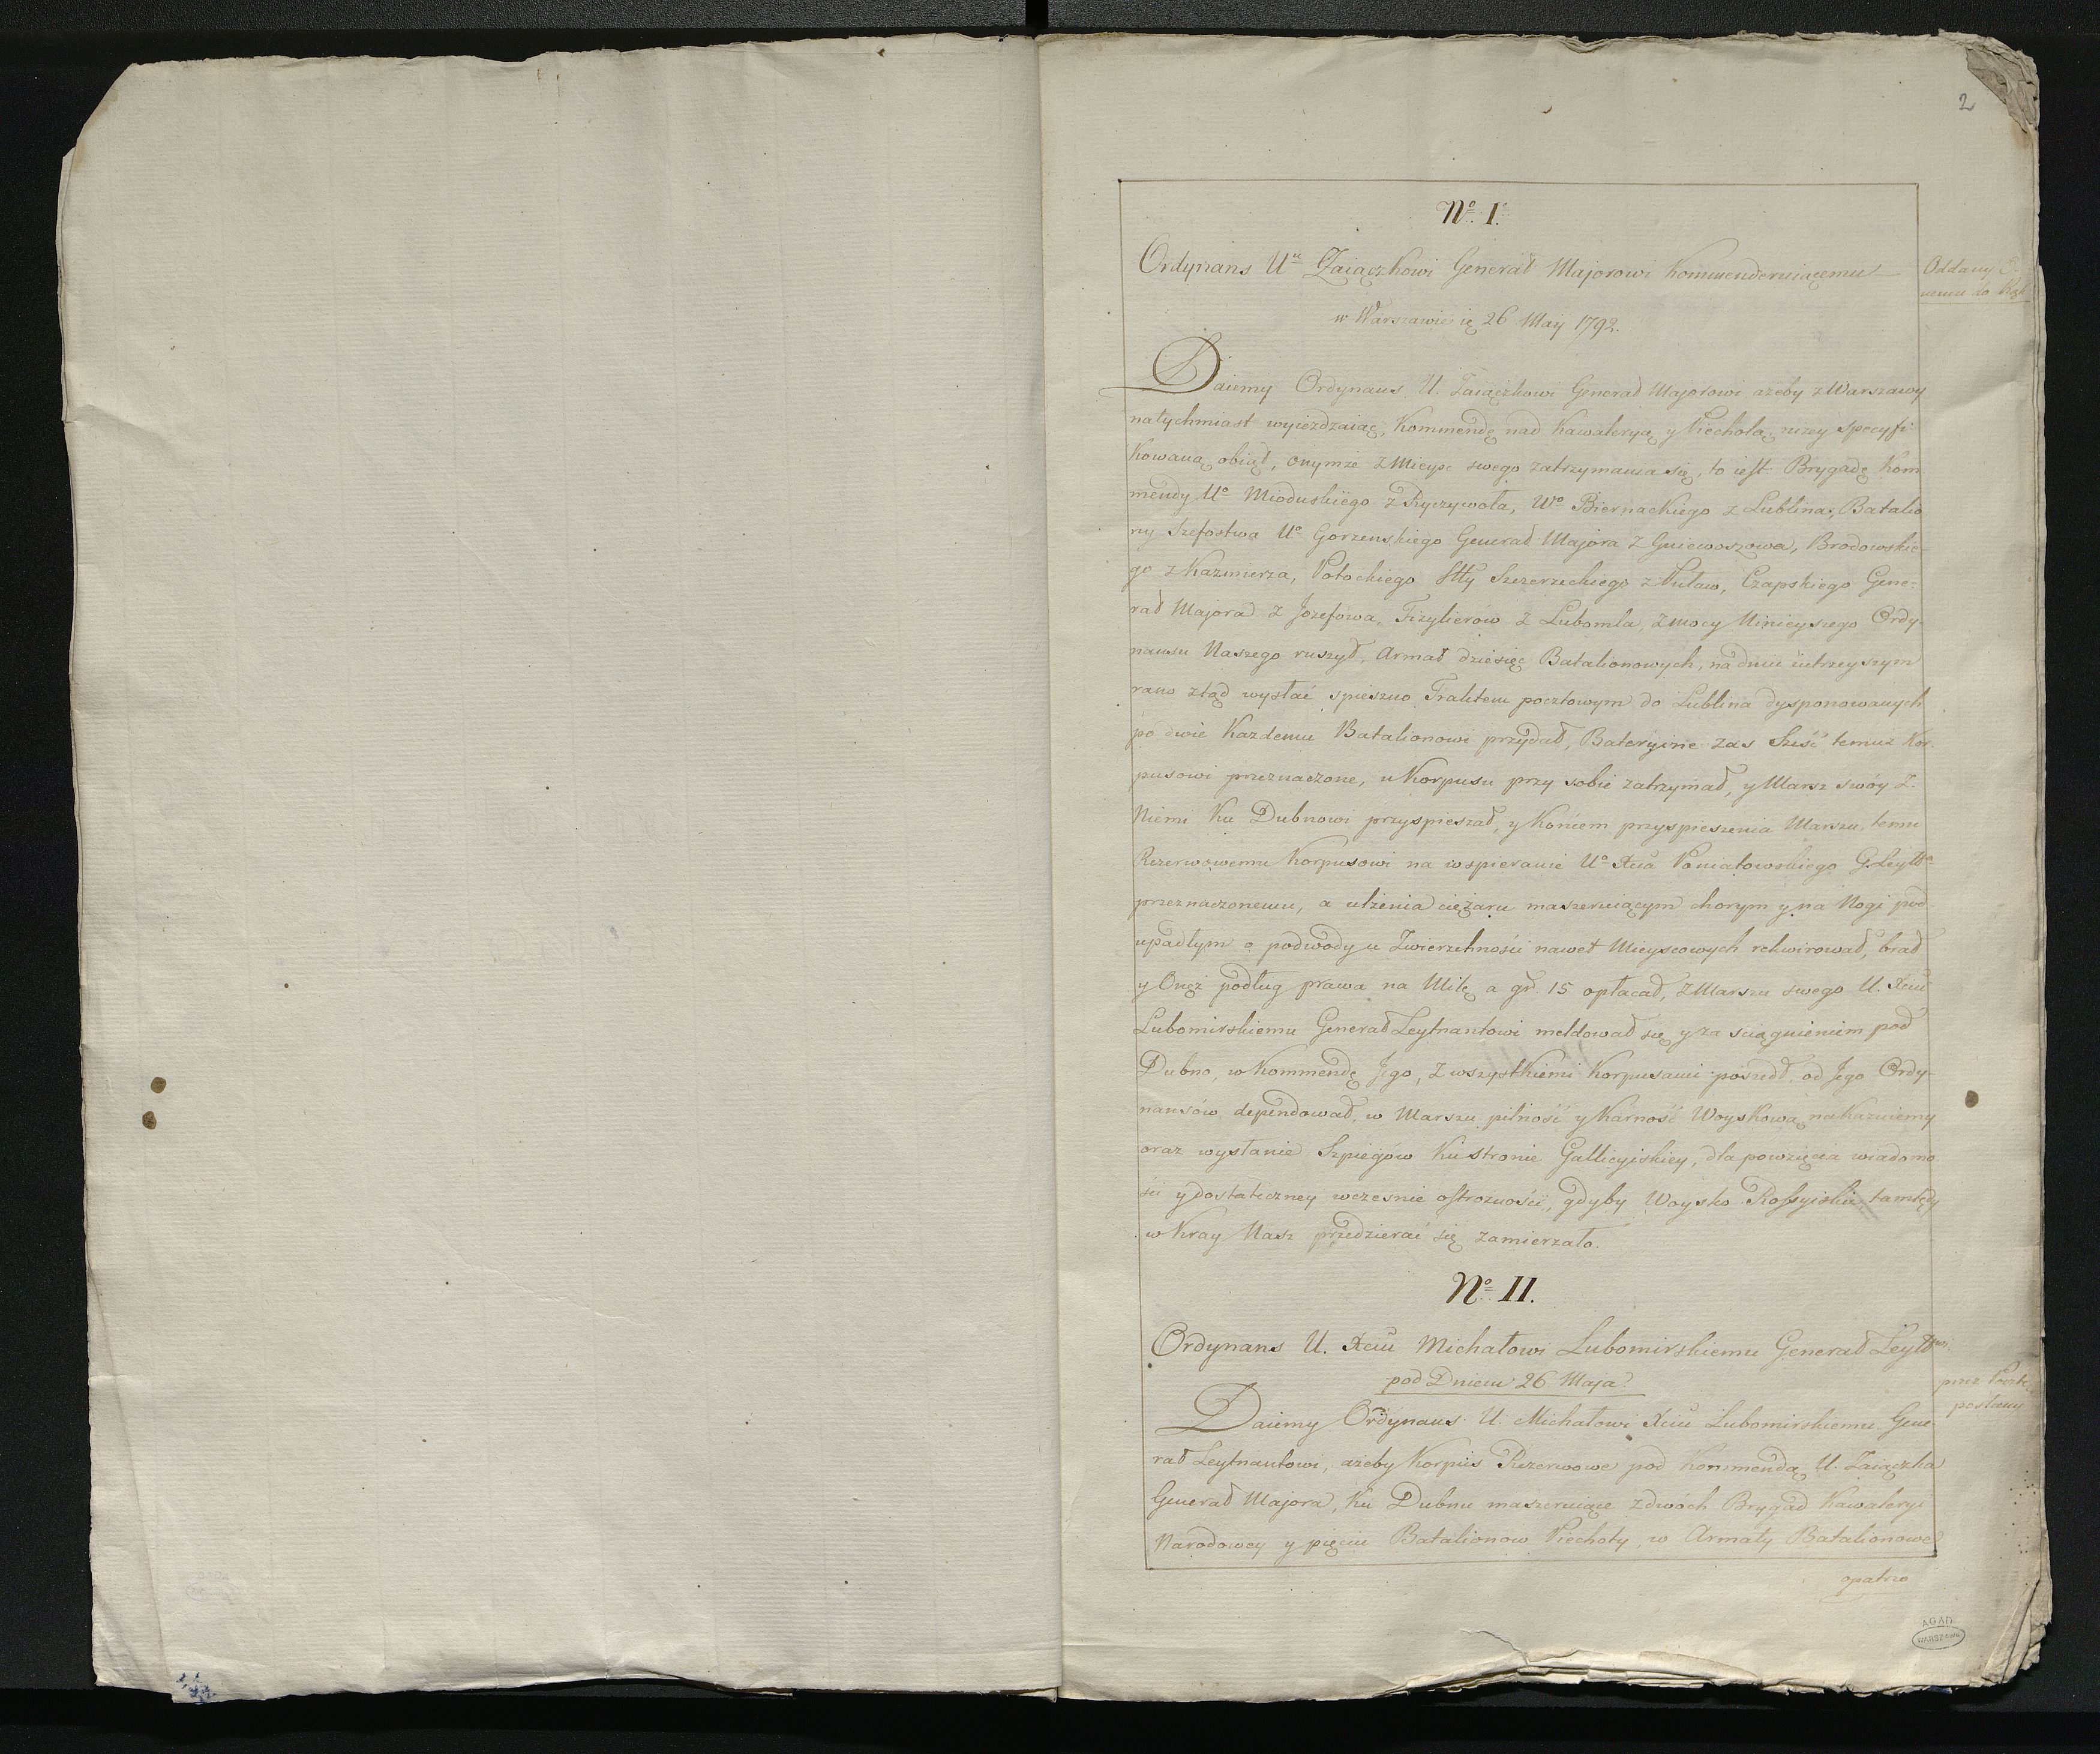 2
No. I.
Ordynans U. Zaiączkowi Generał Majorowi Kommenderuiącemu
Oddany
w Warszawie 26 Maij 1792.
Daiemy Ordynans U. Zaiączkowi Generał Majorowi ażeby z Warszawy
natychmiast wyieżdzaiąc, Kommendę nad Kawaleryą y Piechotą niżey specyfi
kowaną obiął, onymże z Mieysc swego zatrzymania się, to iest Brygadę Kom
mendy Uo Mioduskiego z Ryczywoła, Wo Biernackiego z Lublina, Batalio
ny Szefostwa Uo Gorzenskiego Generał Majora z Gniewoszowa, Brodowskie
go z Kazmierza, Potockiego Stty Szczerzeckiego z Puław, Czapskiego Gene:
rał Majora z Jozefowa, Fizylierow z Lubomla, z mocy Ninieyszego Ordy
nansu Naszego ruszył, Armat dziesięć Batalionowych, na dniu iutrzeyszym
rano ztąd wysłać spieszno Traktem pocztowym do Lublina dysponowanych
po dwie Kazdemu Batalionowi przydał, Bateryine zas Sześć temuż Kor
pusowi przeznaczone, u Korpusu przy sobie zatrzymał, y Marsz swóy z
Niemi Ku Dubnowi przyspieszał, y Końcem przyspieszenia Marszu, temu
Rezerwowemu Korpusowi na wspieranie Uo Xcia Poniatowskiego G. Leytta
przeznaczonemu, a ulżenia ciężaru maszeruiącym chorym y na Nogi pod
upadłym o podwody u Zwierzchności nawet Mieyscowych rekwirował, brał
y Oneż podług prawa na Milę a gr. 15 opłacał, z Marszu swego U. Xciu
Lubomirskiemu Generał Leytnantowi meldował się y za sciągnieniem pod
Dubno, w Kommendę Jego, z wszystkiemi Korpusami poszedł, od Jego Ordy-
nansów dependował, w Marszu pilność y Karność Woyskową nakazuiemy
oraz wysłanie Szpiegów Ku stronie Gallicyiskiey, dla powzięcia wiadomo
ści y dostateczney wczesnie ostrozności, gdyby Woysko Rossyiskie tamtędy
w Kray Nasz przedzierać się zamierzało.
No. II.
Ordynans U. Xciu Michałowi Lubomirskiemu Generał Leyttwi.
pod Dniem 26 Maja.
przez Poczt
posłany
Daiemy Ordynans U. Michałowi Xciu Lubomirskiemu Gene
rał Leytnantowi, ażeby Korpus Rezerwowe pod Kommendą U. Zaiączka
Generał Majora, Ku Dubnu maszeruiące z dwóch Brygad Kawaleryi
Narodowey y pięciu Batalionow Piechoty, w Armaty Batalionowe
opatrzo
AGAD
WARSZAWA